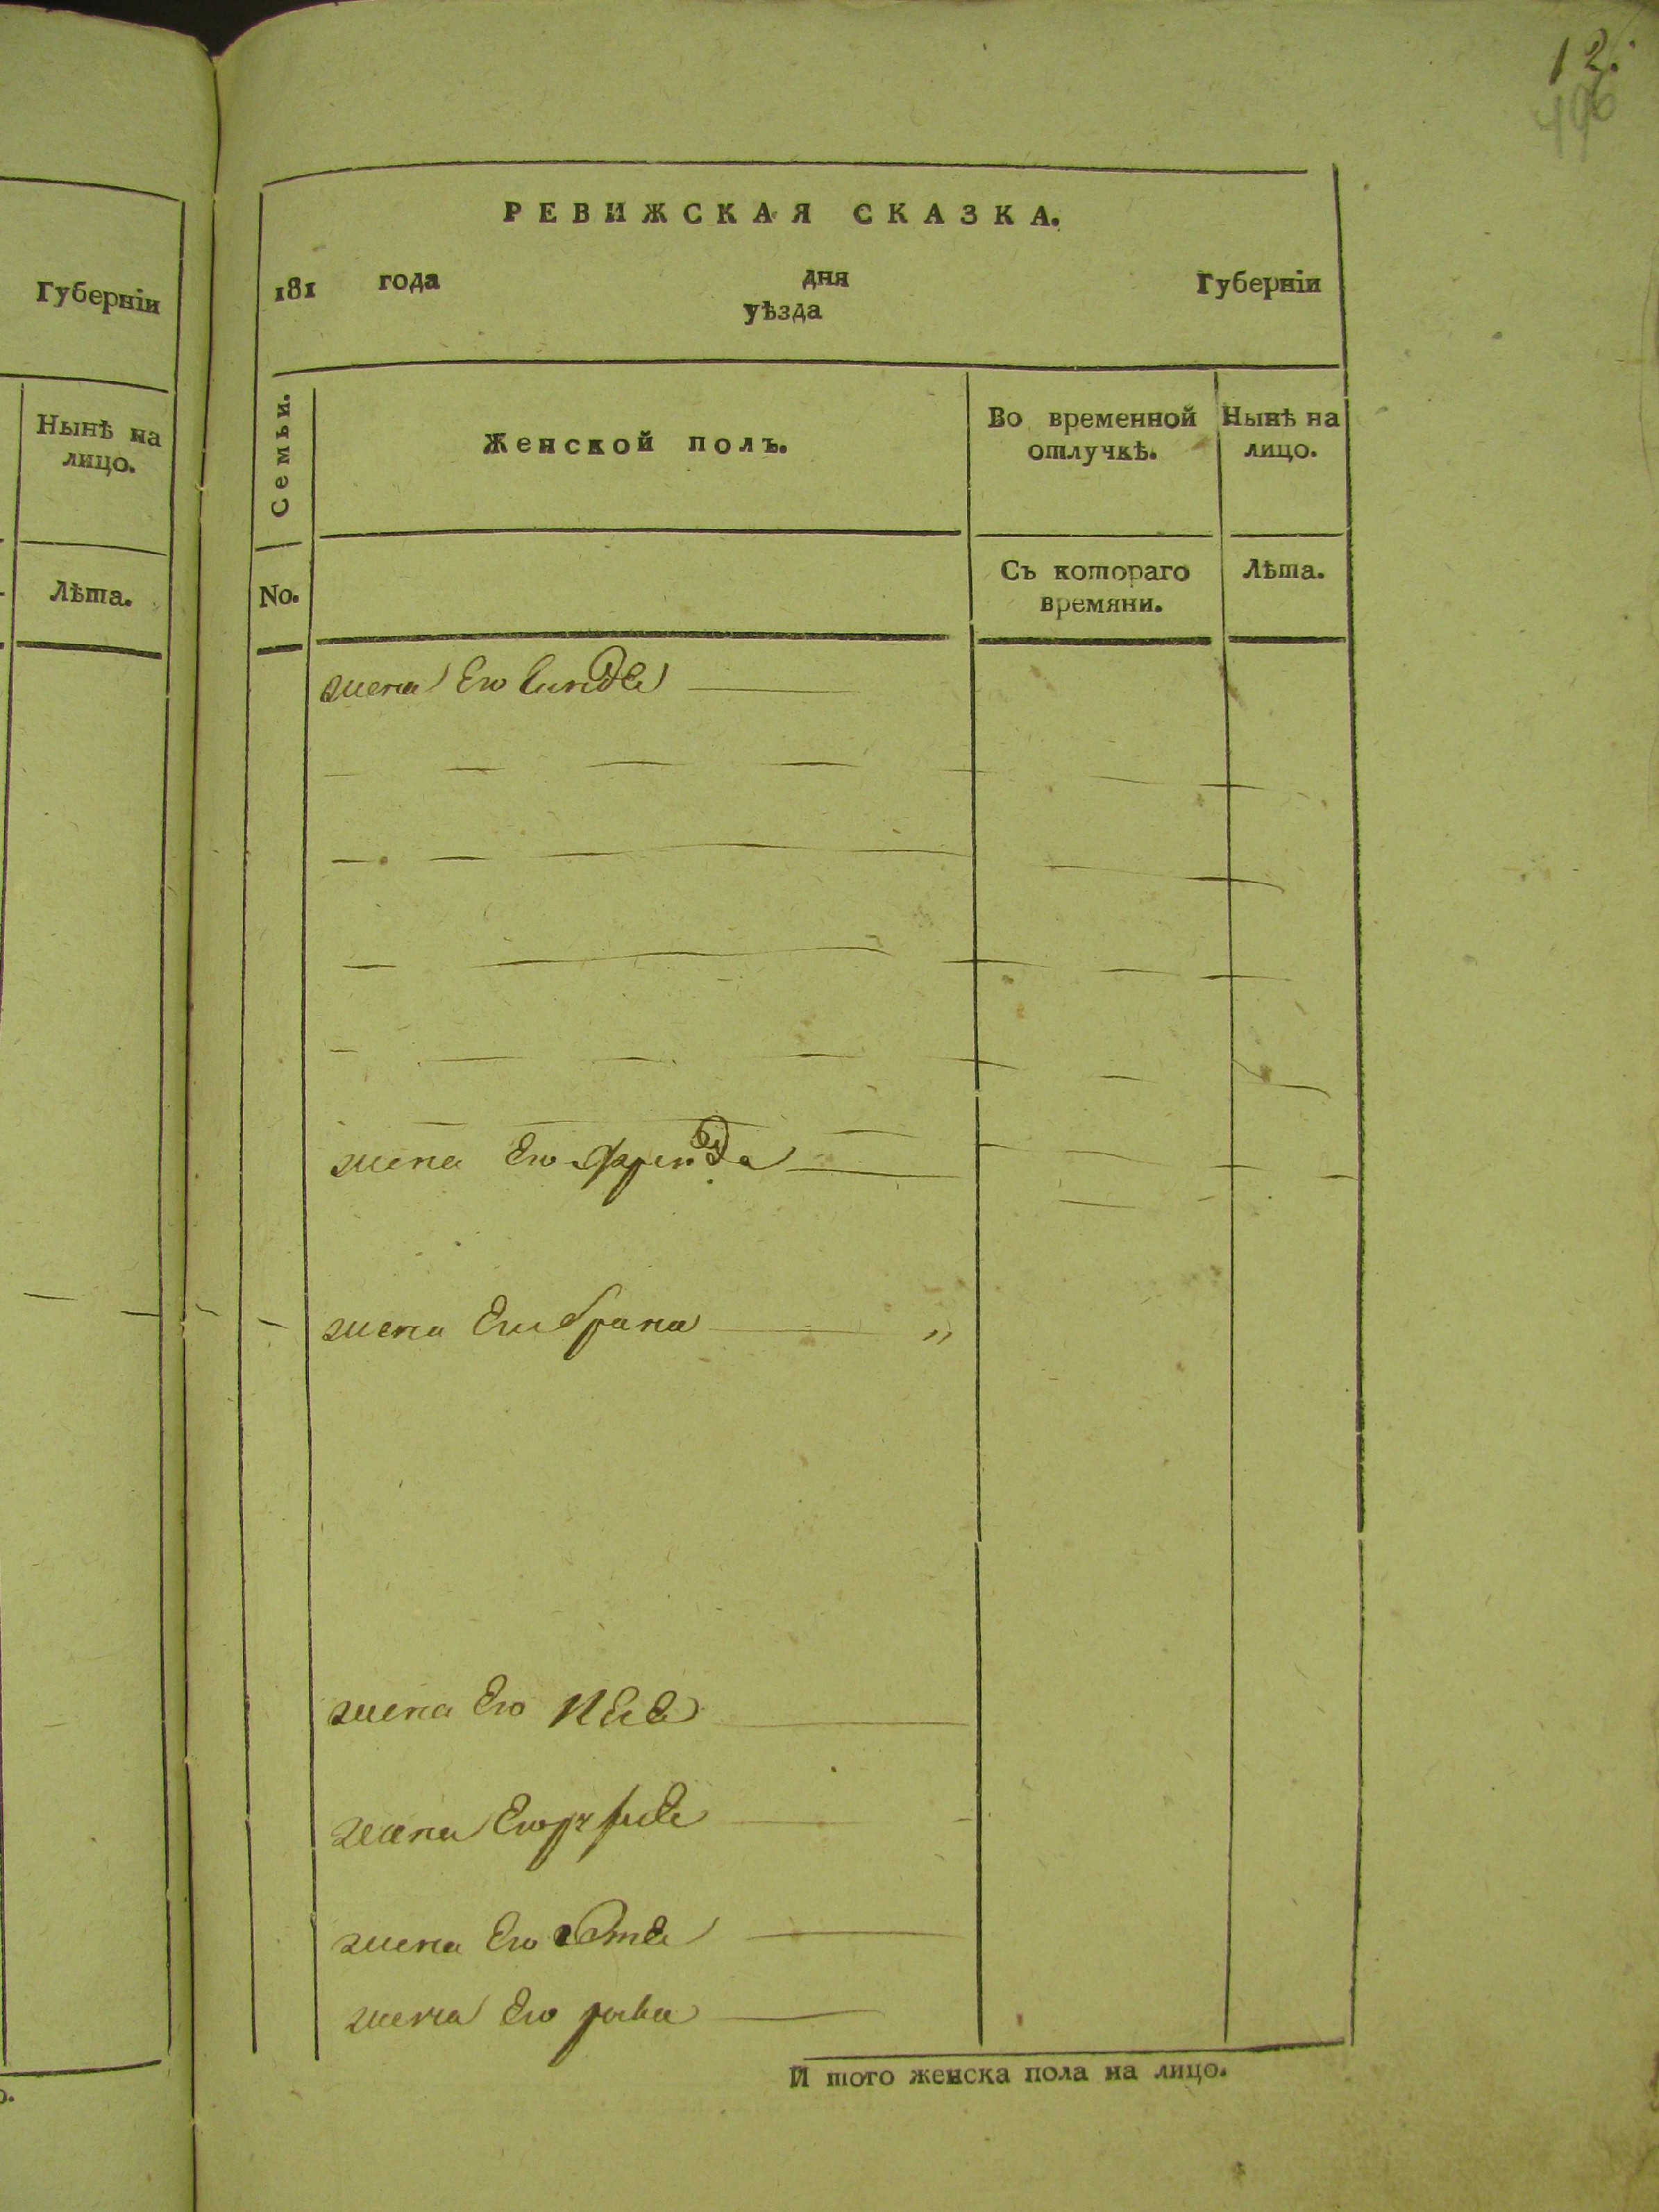 12.
496
РЕВИЖСКАЯ СКАЗКА.
181 года дня Губерніи
уѣзда
Губерніи
Семьи.
Женской полъ.
Во временной отлучкѣ.
Нынѣ на лицо.
Нынѣ на лицо.
No.
Съ котораго времяни.
Лѣта.
Лѣта.
жена Его
жена Его Фрейда
жена Его брана
жена Его
жена Его
жена Его
жена Его рива
И того женска пола на лицо.